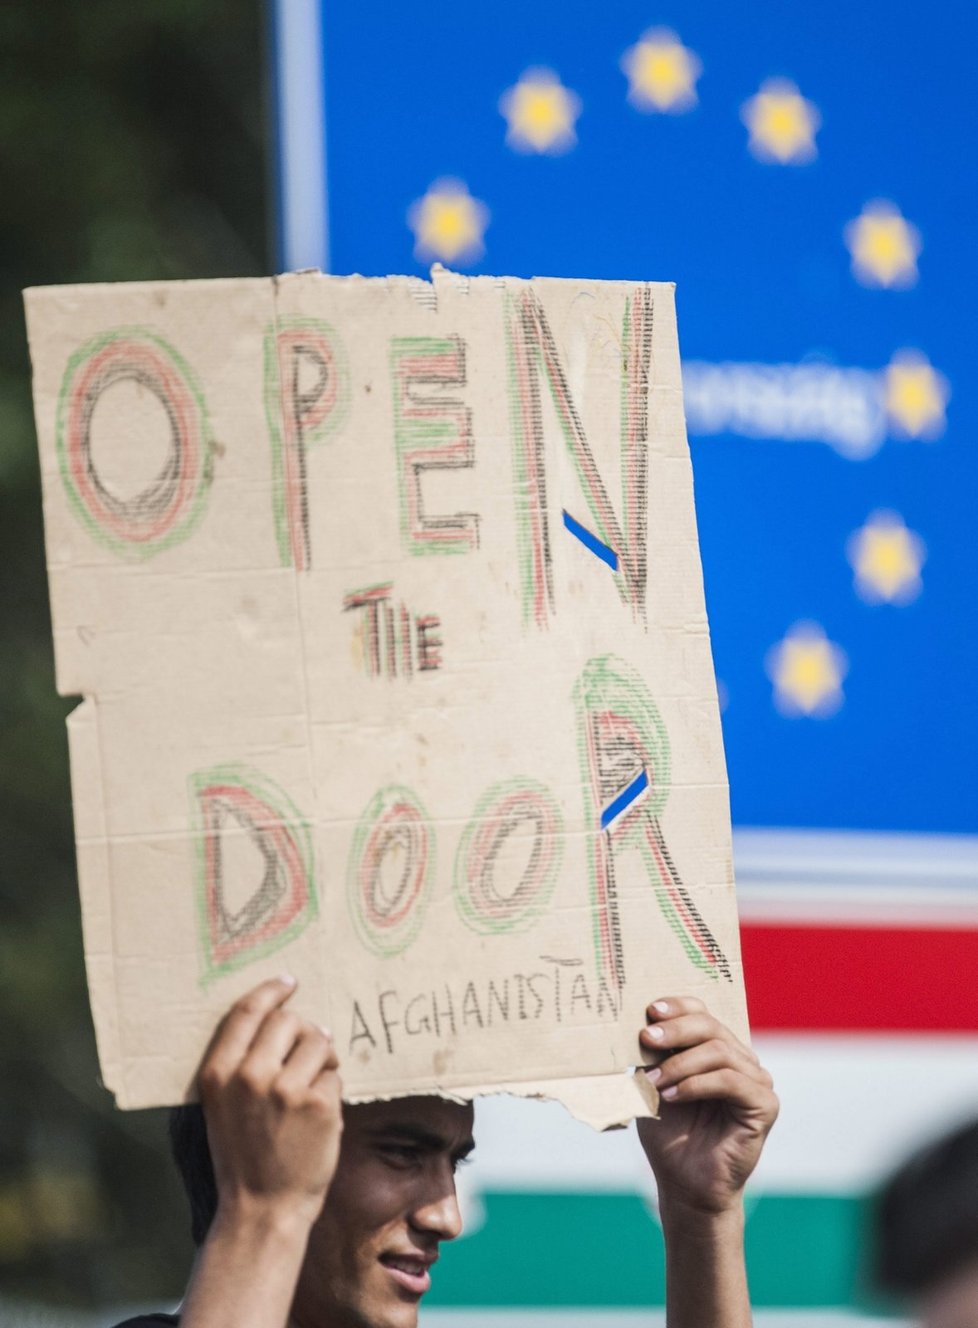 OPEN
THE
DOOR
AFGHANISTAN